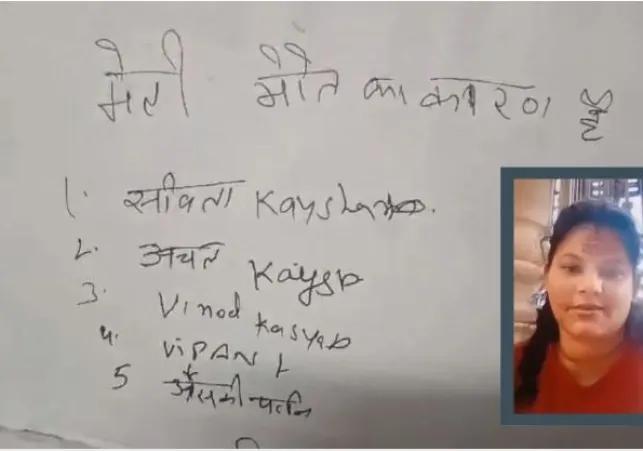 मेरी मौत का कारण है
1. सविता Kayshab.
2. अचल Kaysb
3. Vinod Kasyab
4. ViPAN K
5 उसकी पत्नि